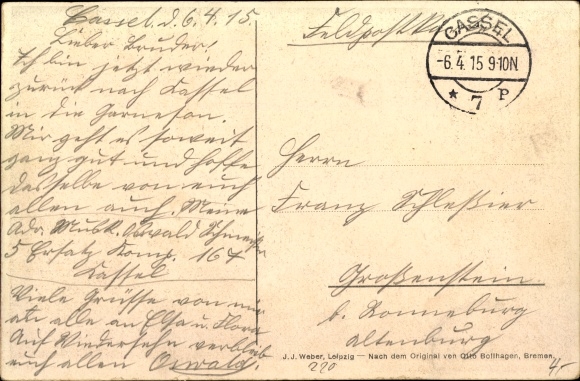 Cassel, d. 6.4.15.
Lieber Bruder!
Ich bin jetzt wieder
zurück nach Kassel
in die Garneson.
Mir geht es soweit
ganz gut und hoffe
dasselbe von euch
allen auch. Meine
Adr. Musk. Oswald
5 Ersatz Komp. 167
Kassel
Viele Grüsse von mir
an alle an Elsa u. Flora
Auf Wiedersehn verbleib
euch allen Oswald.
Feldpostkarte
CASSEL
-6.4.15 9-10N
* 7 P
Herrn
Franz Schleßier
Großenstein
b. Ronneburg
Altenburg
J. J. Weber, Leipzig — Nach dem Original von Otto Bollhagen, Bremen.
220
4,-